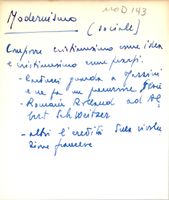 Modernismo
MOD 143
(sociale)
Cristianesimo come idea
e cristianesimo come prassi.
- Carducci guarda a Mazzini
e ne fa un precursore
- Romain Rolland ad Al
bert Schweitzer
- altri l'eredità della rivolu
zione francese